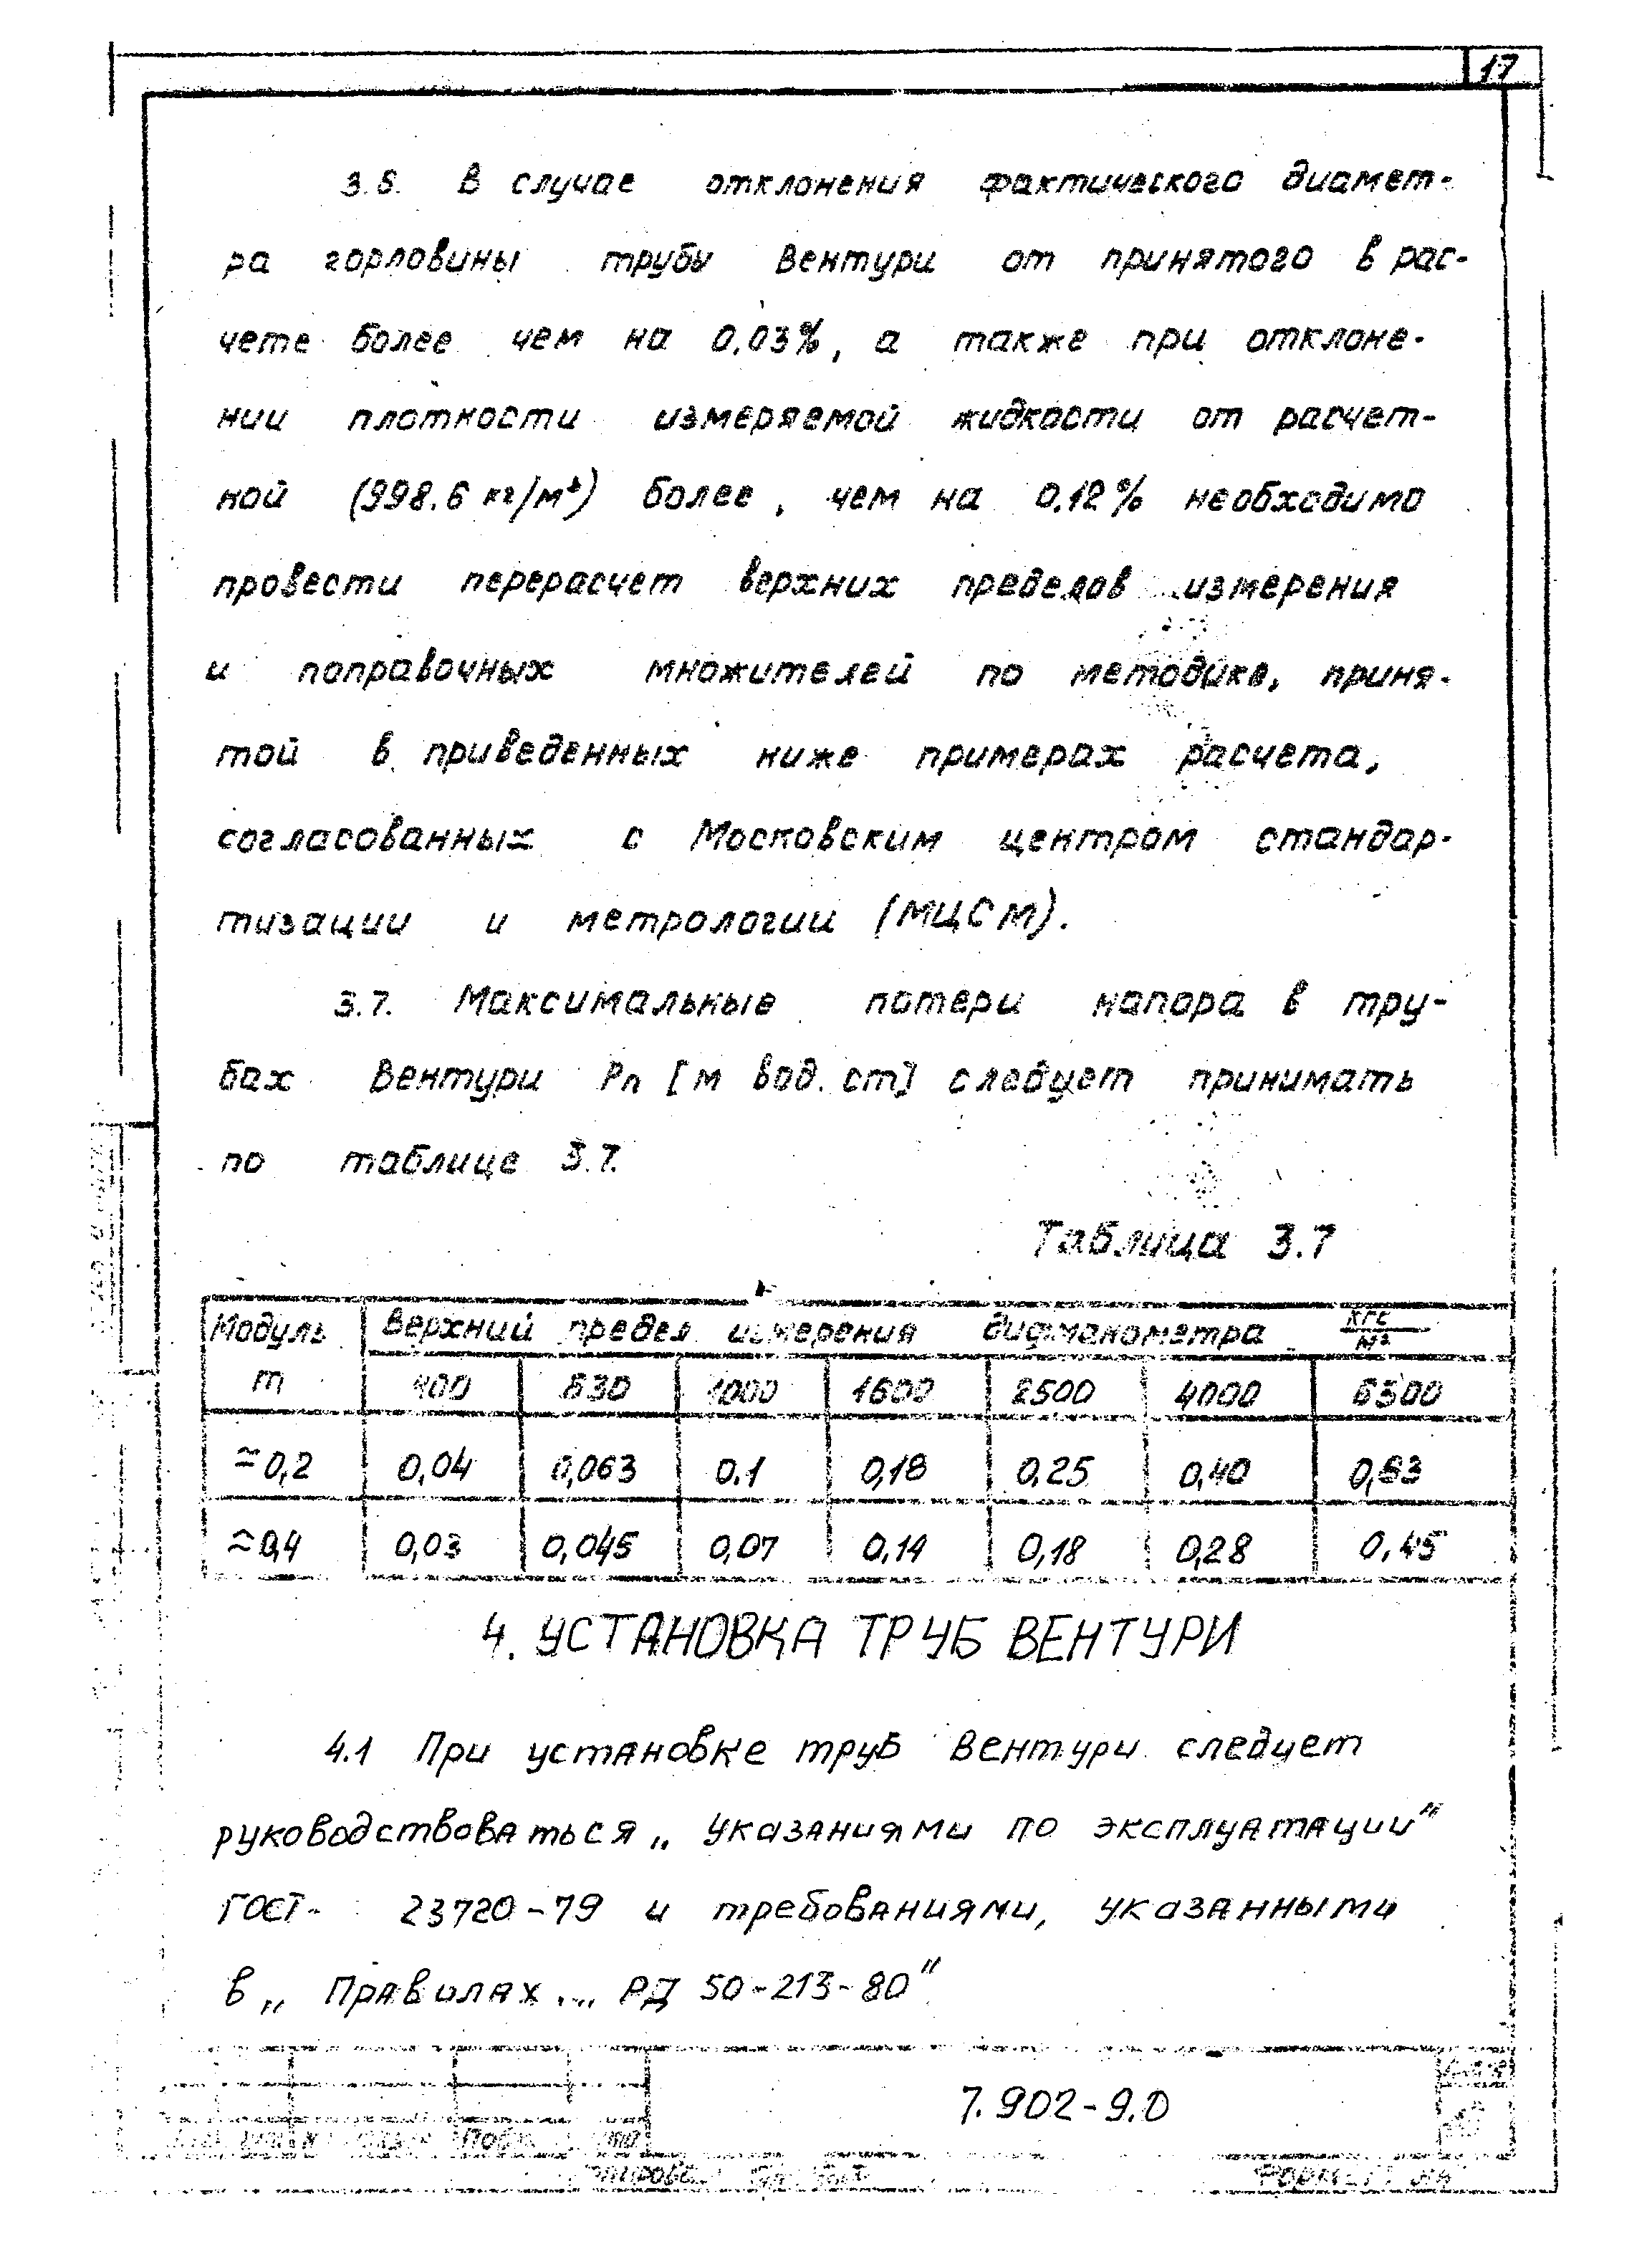 17
3.6. В случае отклонения фактического диамет-
ра горловины трубы Вентури от принятого в рас-
чете более чем на 0,03%, а также при отклоне-
нии плотности измеряемой жидкости от расчет-
ной (998.6 кг/м³) более, чем на 0.12% необходимо
провести перерасчет верхних пределов измерения
и поправочных множителей по методике, приня-
той в приведенных ниже примерах расчета,
согласованных с Московским центром стандар-
тизации и метрологии (МЦСМ).
3.7. Максимальные потери напора в тру-
бах Вентури Рп [м вод. ст] следует принимать
по таблице 3.7.
Таблица 3.7
Модуль m Верхний предел измерения дифманометра кгс/м²
400 630 1000 1600 2500 4000 6300
≈0,2 0,04 0,063 0.1 0,18 0,25 0,40 0,63
≈0,4 0,03 0,045 0,07 0,14 0,18 0,28 0,45
4. УСТАНОВКА ТРУБ ВЕНТУРИ
4.1 При установке труб Вентури следует
руководствоваться „Указаниями по эксплуатации"
ГОСТ- 23720-79 и требованиями, указанными
в „Правилах... РД 50-213-80"
7.902-9.0